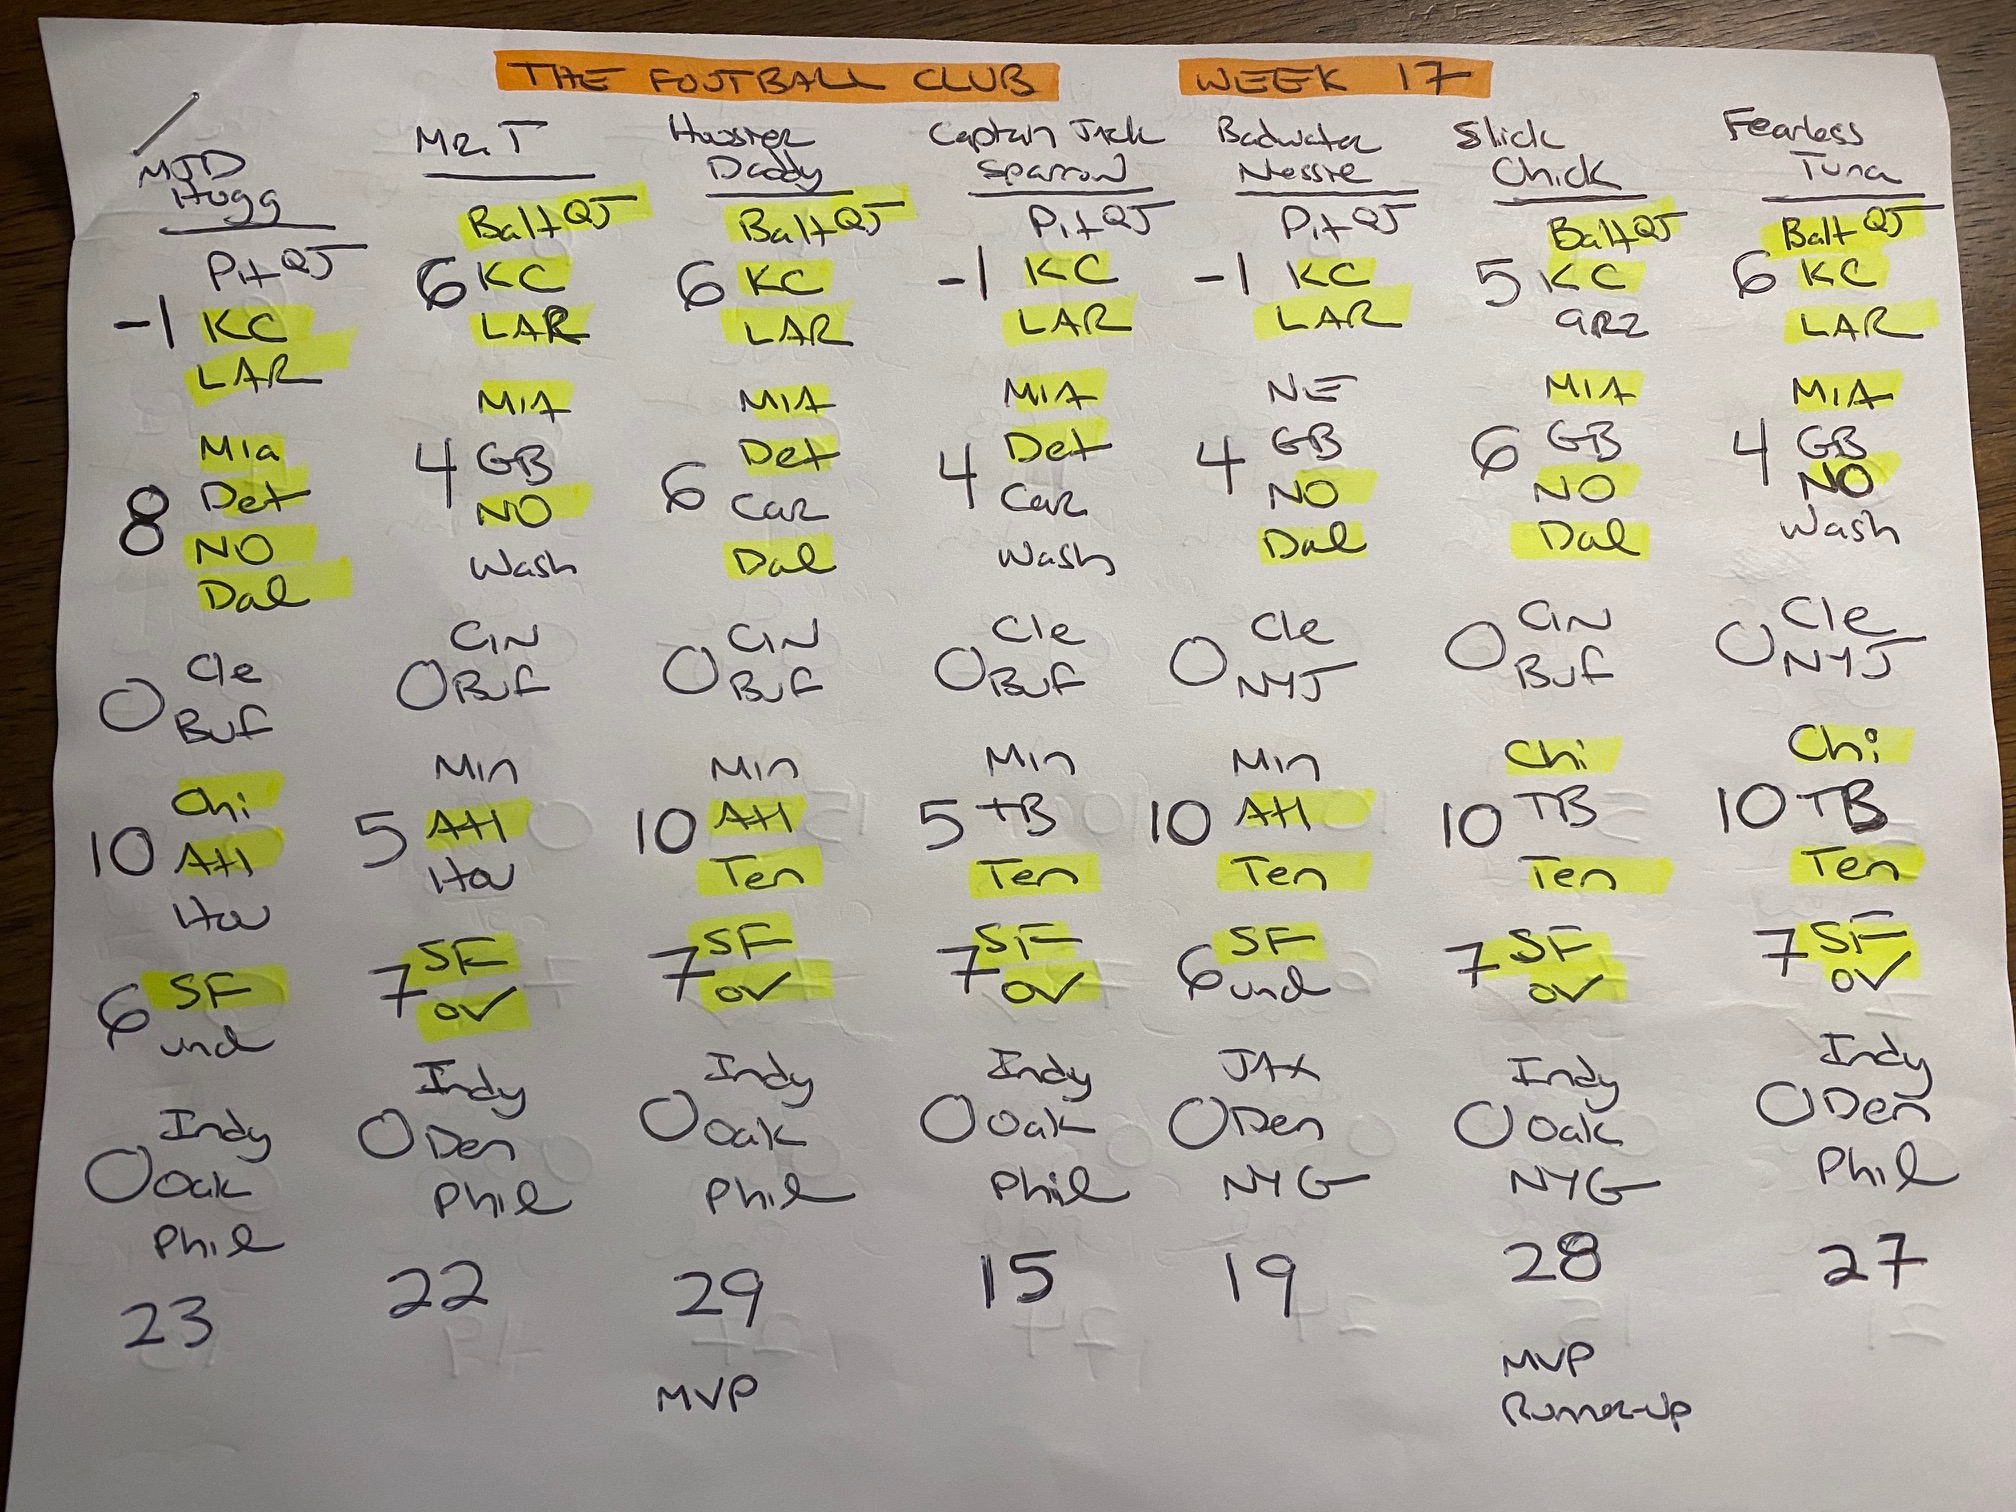 THE FOOTBALL CLUB WEEK 17
MJD
Hugg
Pit QJ
-1 KC
LAR
Mia
Det
8 NO
Dal
Cle
0 Buf
Chi
10 AH
Hou
6 SF
und
Indy
0 Oak
Phil
23
Mr. T
Balt QJ
6 KC
LAR
MIA
4 GB
NO
Wash
CIN
0 Buf
Min
5 AH
Hou
7 SF
OV
Indy
0 Den
Phil
22
Hoosier
Daddy
Balt QJ
6 KC
LAR
MIA
Det
6 Car
Dal
CIN
0 Buf
Min
10 AH
Ten
7 SF
OV
Indy
0 Oak
Phil
29
MVP
Captain Jack
Sparrow
Pit QJ
-1 KC
LAR
MIA
4 Det
Car
Wash
Cle
0 Buf
Min
5 TB
Ten
7 SF
OV
Indy
0 Oak
Phil
15
Badwater
Nessie
Pit QJ
-1 KC
LAR
NE
4 GB
NO
Dal
Cle
0 NYJ
Min
10 AH
Ten
6 SF
und
JAX
0 Den
NYG
19
Slick
Chick
Balt QJ
5 KC
ARZ
MIA
6 GB
NO
Dal
CIN
0 Buf
Chi
10 TB
Ten
7 SF
OV
Indy
0 Oak
NYG
28
MVP
Runner-up
Fearless
Tuna
Balt QJ
6 KC
LAR
MIA
4 GB
NO
Wash
Cle
0 NYJ
Chi
10 TB
Ten
7 SF
OV
Indy
0 Den
Phil
27